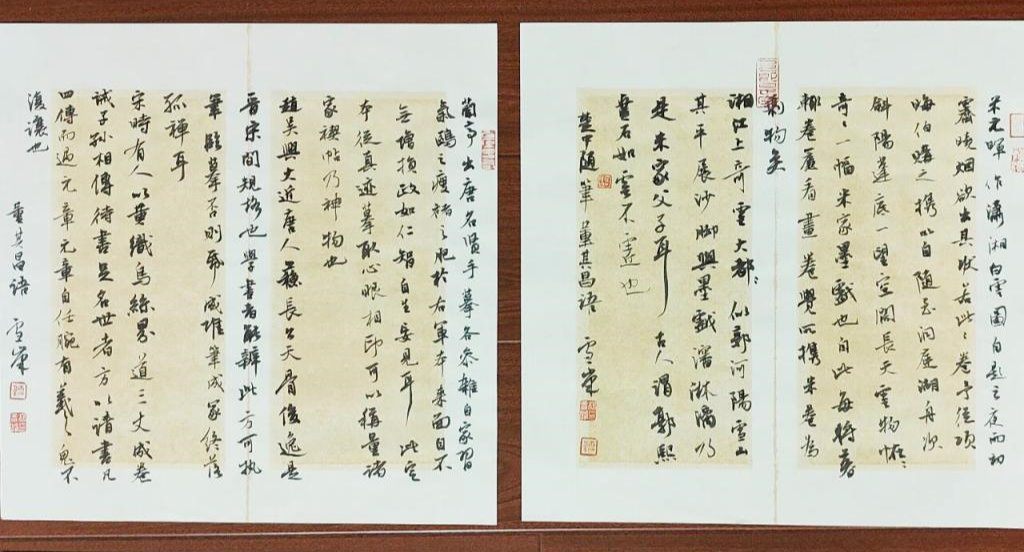 米元暉作瀟湘白雲圖自題之夜雨初
霽曉烟欲出其狀若此此卷予從項
晦伯購之携以自隨至洞庭湖舟次
斜陽蓬底一望空闊長天雲物怪怪
奇奇一幅米家墨戲也自此每將暮
輒卷簾看畫卷覺所携米卷為
剩物矣
湘江上奇雲大都似郭河陽雪山
其平展沙脚與墨戲瀋淋漓乃
是米家父子耳 古人謂郭熙
畫石如雲不虛也
楚中隨筆 董其昌語 雪
蘭亭出唐名賢手摹各參雜自家習
氣歐之瘦褚之肥於右軍本來面目不
無增損政如仁智自生妄見耳 此定
本從真迹摹取心眼相印可以稱量諸
家禊帖乃神物也
趙吳興大近唐人蘇長公天骨俊逸是
晉宋間規格也學書者能辨此方可執
筆臨摹否則紙成堆筆成冢終落
狐禪耳
宋時有人以黃織烏絲界道三丈成卷
誡子孫相傳待書足名世者方以請書凡
四傳而遇元章元章自任腕有羲之鬼不
復讓也
董其昌語 雪